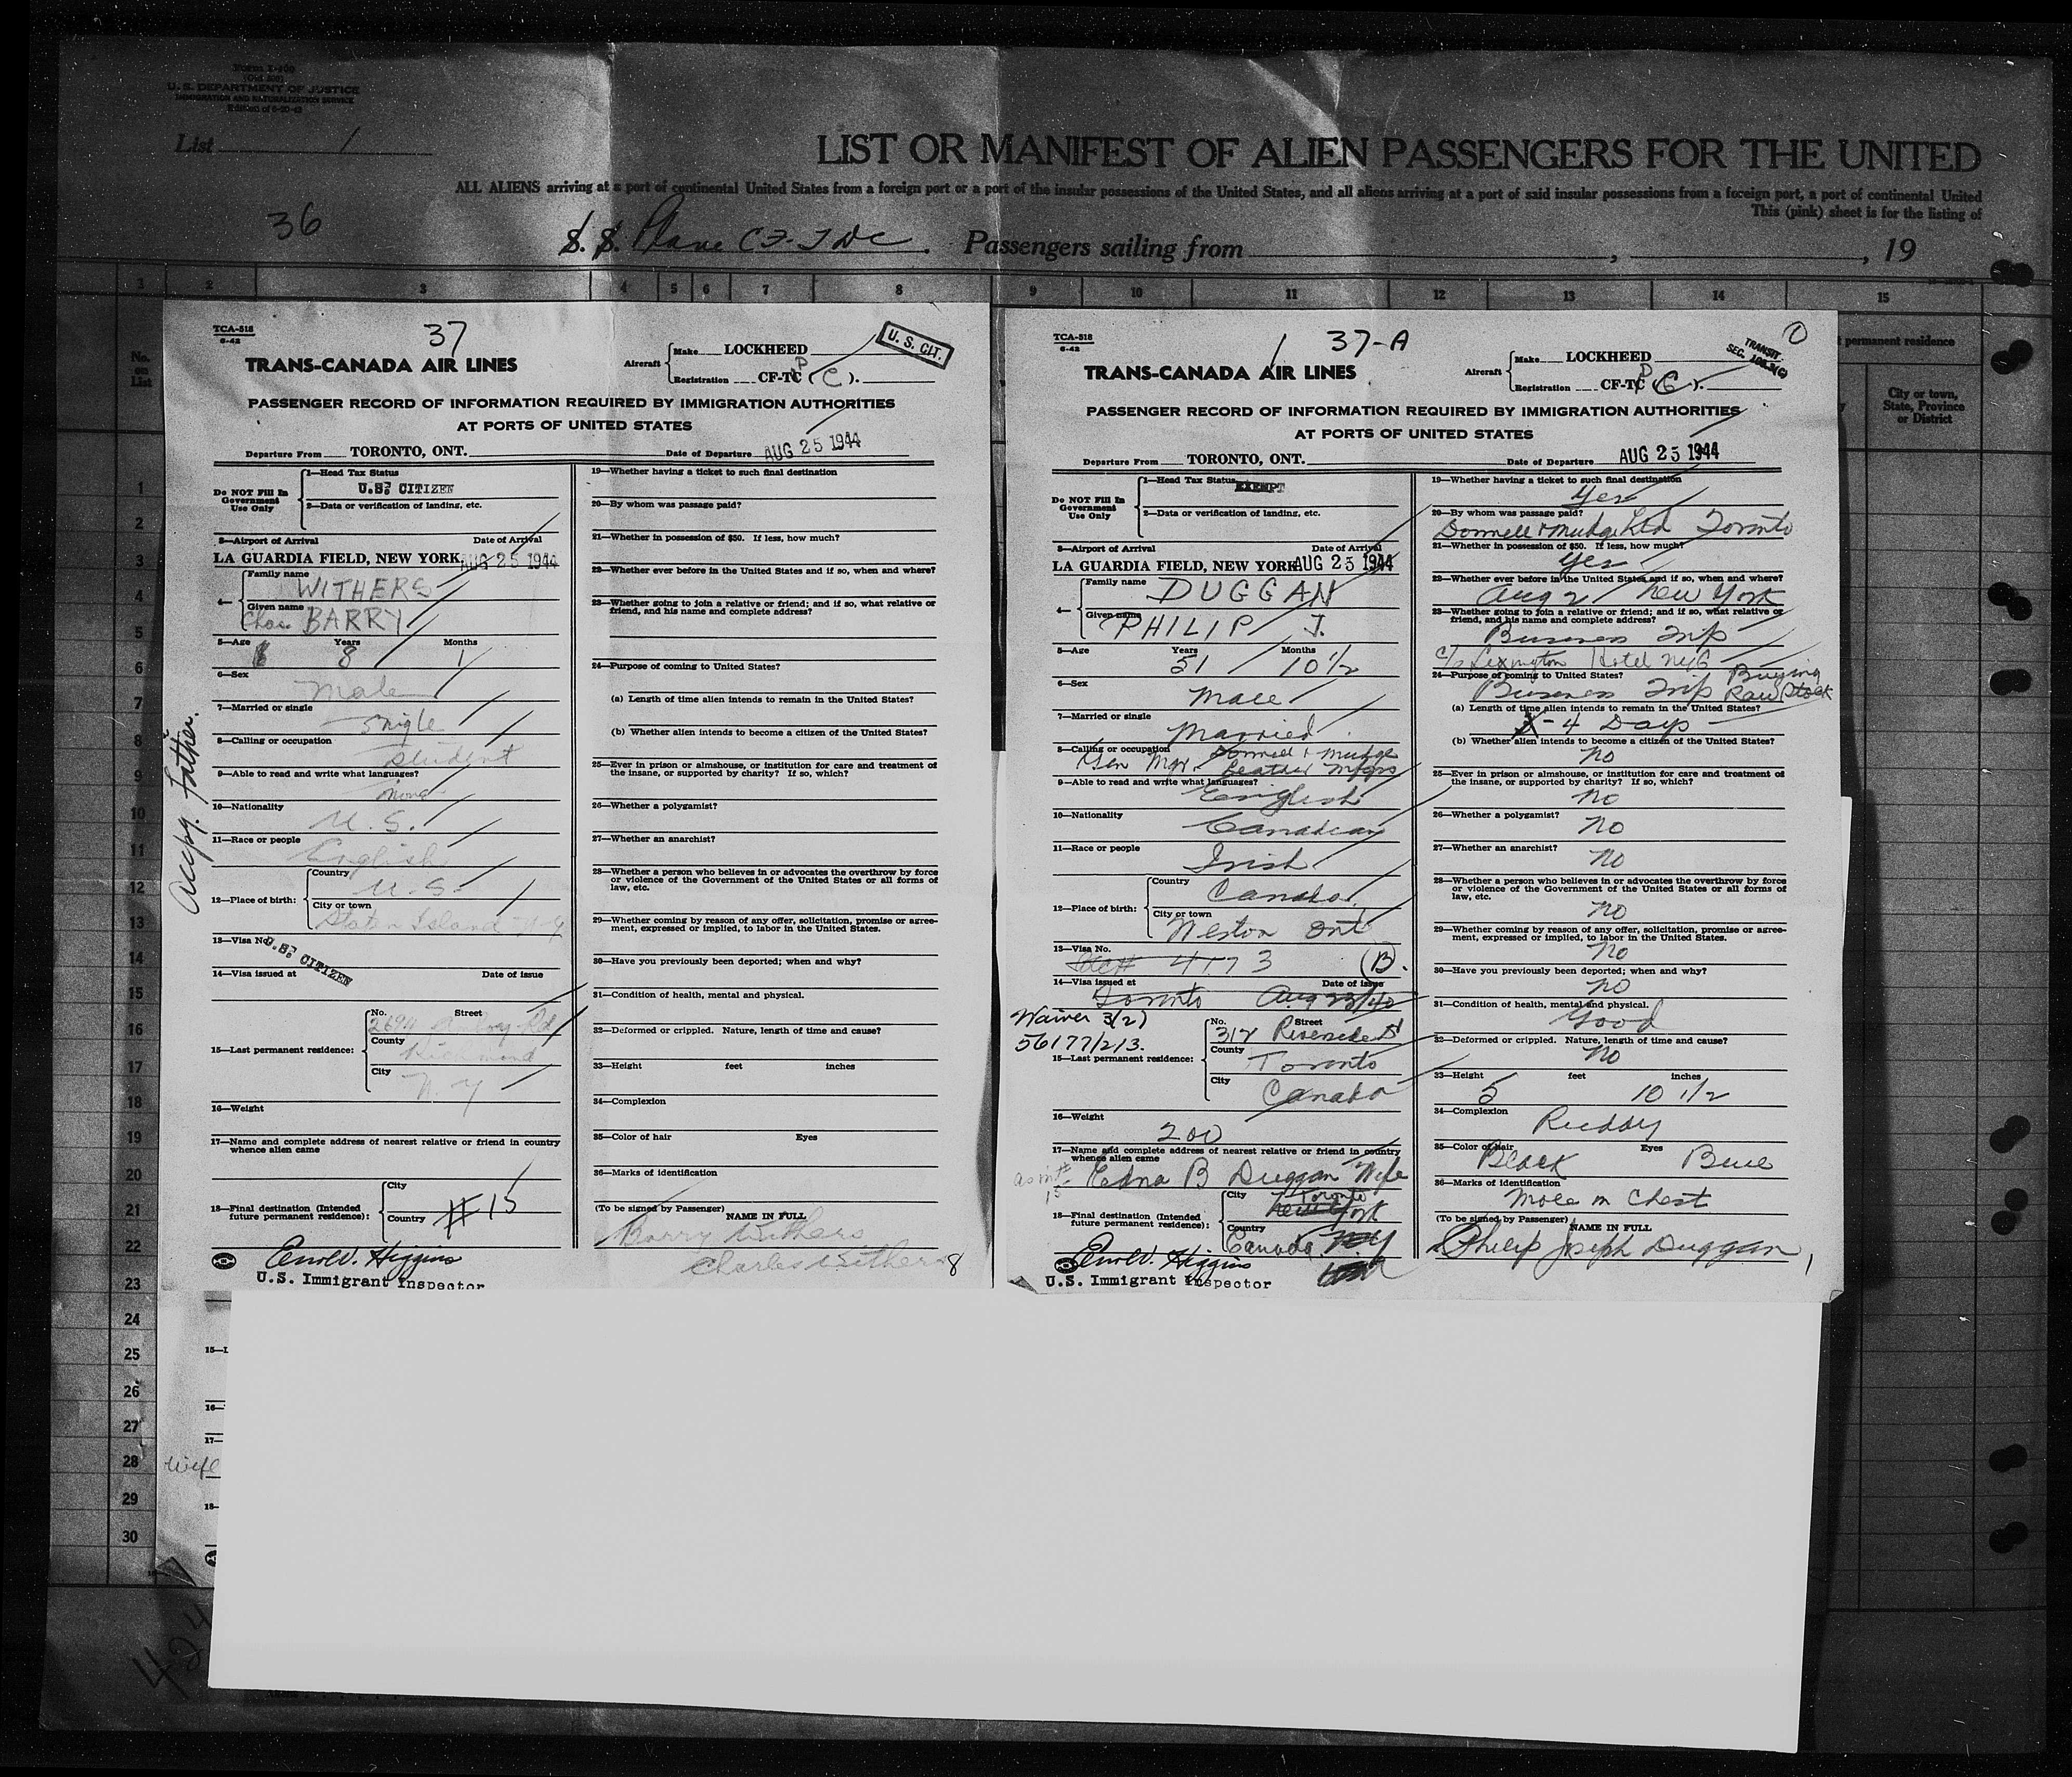 Form I-400
(Old 500)
U. S. DEPARTMENT OF JUSTICE
IMMIGRATION AND NATURALIZATION SERVICE
List 1
LIST OR MANIFEST OF ALIEN PASSENGERS FOR THE UNITED
ALL ALIENS arriving at a port of continental United States from a foreign port or a port of the insular possessions of the United States, and all aliens arriving at a port of said insular possessions from a foreign port, a port of continental United
This (pink) sheet is for the listing of
36
S. S. Plane CF-TDC. Passengers sailing from , , 19
1 2 3 4 5 6 7 8 9 10 11 12 13 14 15
No. on List
permanent residence
City or town, State, Province or District
TCA-518
6-42
37
U. S. CIT.
TRANS-CANADA AIR LINES
Aircraft
Make LOCKHEED
Registration CF-TC D (C).
PASSENGER RECORD OF INFORMATION REQUIRED BY IMMIGRATION AUTHORITIES
AT PORTS OF UNITED STATES
Departure From TORONTO, ONT. Date of Departure AUG 25 1944
Do NOT Fill In Government Use Only
1—Head Tax Status
U.S. CITIZEN
2—Data or verification of landing, etc.
3—Airport of Arrival Date of Arrival
LA GUARDIA FIELD, NEW YORK, AUG 25 1944
4— Family name WITHERS
Given name Chas. BARRY
5—Age Years 8 Months 1
6—Sex
Male
7—Married or single
Single
8—Calling or occupation
Student
9—Able to read and write what languages?
None
10—Nationality
U. S.
11—Race or people
English
12—Place of birth:
Country
U. S.
City or town
Staten Island N-Y
13—Visa No. U.S. CITIZEN
14—Visa issued at Date of issue
15—Last permanent residence:
No. Street
Amboy Rd
County
Richmond
City
N. Y
16—Weight
17—Name and complete address of nearest relative or friend in country
whence alien came
18—Final destination (Intended
future permanent residence):
City
Country
#15
U.S. Immigrant Inspector
Accpg. Father.
19—Whether having a ticket to such final destination
20—By whom was passage paid?
21—Whether in possession of $50. If less, how much?
22—Whether ever before in the United States and if so, when and where?
23—Whether going to join a relative or friend; and if so, what relative or
friend, and his name and complete address?
24—Purpose of coming to United States?
(a) Length of time alien intends to remain in the United States?
(b) Whether alien intends to become a citizen of the United States?
25—Ever in prison or almshouse, or institution for care and treatment of
the insane, or supported by charity? If so, which?
26—Whether a polygamist?
27—Whether an anarchist?
28—Whether a person who believes in or advocates the overthrow by force
or violence of the Government of the United States or all forms of
law, etc.
29—Whether coming by reason of any offer, solicitation, promise or agree-
ment, expressed or implied, to labor in the United States.
30—Have you previously been deported; when and why?
31—Condition of health, mental and physical.
32—Deformed or crippled. Nature, length of time and cause?
33—Height feet inches
34—Complexion
35—Color of hair Eyes
36—Marks of identification
(To be signed by Passenger) NAME IN FULL
Barry Withers
Charles Withers
8
TCA-518
6-42
1 37-A
TRANSIT
TRANS-CANADA AIR LINES
Aircraft
Make LOCKHEED
Registration CF-TC D (C).
PASSENGER RECORD OF INFORMATION REQUIRED BY IMMIGRATION AUTHORITIES
AT PORTS OF UNITED STATES
Departure From TORONTO, ONT. Date of Departure AUG 25 1944
Do NOT Fill In Government Use Only
1—Head Tax Status EXEMPT
2—Data or verification of landing, etc.
3—Airport of Arrival Date of Arrival
LA GUARDIA FIELD, NEW YORK AUG 25 1944
4— Family name DUGGAN
Given name PHILIP J.
5—Age Years 51 Months 10 1/2
6—Sex
Male
7—Married or single
Married
8—Calling or occupation Donnell & Mudge
Gen Mgr. Leather Mfgrs
9—Able to read and write what languages?
English
10—Nationality
Canadian
11—Race or people
Irish
12—Place of birth:
Country
Canada
City or town
Weston Ont
13—Visa No.
4173 (B).
14—Visa issued at Date of issue
Toronto
Waiver 3(2)
56177/213.
15—Last permanent residence:
No. Street
312 Riverside Dr
County
Toronto
City
Canada
16—Weight
200
17—Name and complete address of nearest relative or friend in country
whence alien came
Edna B Duggan Wife
18—Final destination (Intended
future permanent residence):
City Toronto
New York
Country
Canada
U.S. Immigrant Inspector
19—Whether having a ticket to such final destination
Yes
20—By whom was passage paid?
Donnell & Mudge Ltd Toronto
21—Whether in possession of $50. If less, how much?
Yes
22—Whether ever before in the United States and if so, when and where?
Aug 2 New York
23—Whether going to join a relative or friend; and if so, what relative or
friend, and his name and complete address?
Business Trip
c/o Lexington Hotel NYC
24—Purpose of coming to United States? Buying
Business Trip Raw Stock
(a) Length of time alien intends to remain in the United States?
4 Days
(b) Whether alien intends to become a citizen of the United States?
No
25—Ever in prison or almshouse, or institution for care and treatment of
the insane, or supported by charity? If so, which?
No
26—Whether a polygamist?
No
27—Whether an anarchist?
No
28—Whether a person who believes in or advocates the overthrow by force
or violence of the Government of the United States or all forms of
law, etc.
No
29—Whether coming by reason of any offer, solicitation, promise or agree-
ment, expressed or implied, to labor in the United States.
No
30—Have you previously been deported; when and why?
No
31—Condition of health, mental and physical.
Good
32—Deformed or crippled. Nature, length of time and cause?
No
33—Height 5 feet 10 1/2 inches
34—Complexion
Ruddy
35—Color of hair Black Eyes Blue
36—Marks of identification
Mole on Chest
(To be signed by Passenger) NAME IN FULL
Philip Joseph Duggan
1
2
3
4
5
6
7
8
9
10
11
12
13
14
15
16
17
18
19
20
21
22
23
24
25
26
27
28
29
30
15—L
16—
17—
wife
18—
424